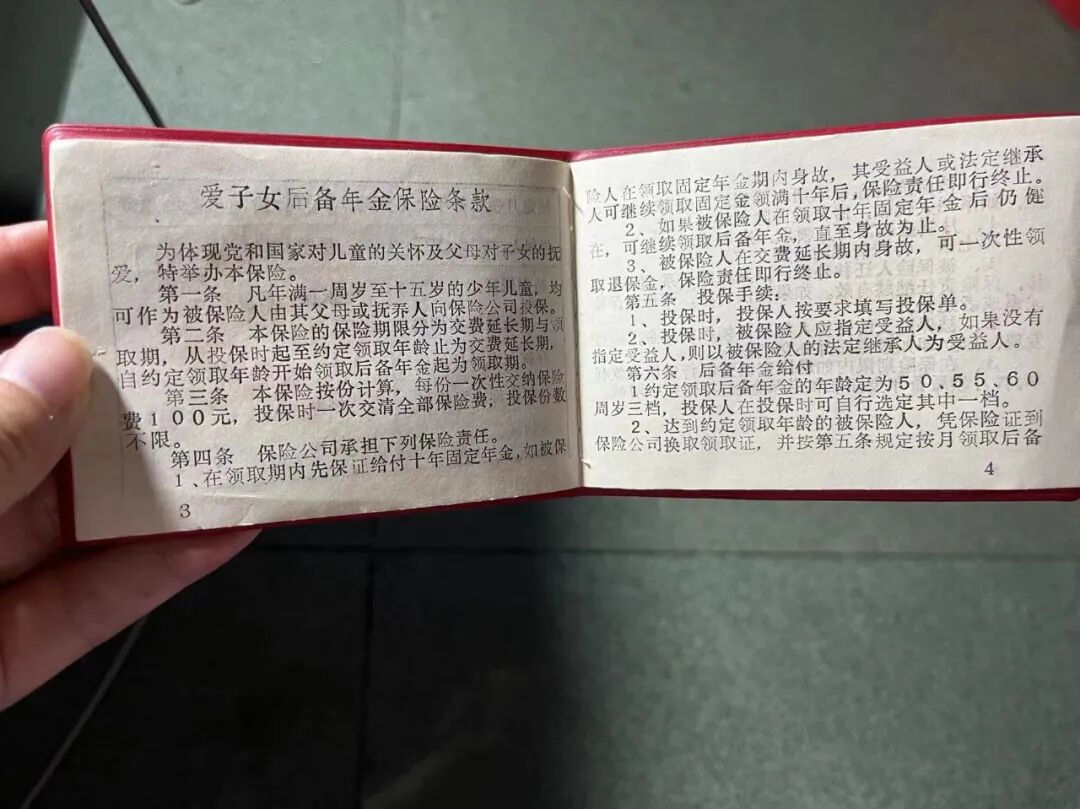 爱子女后备年金保险条款
为体现党和国家对儿童的关怀及父母对子女的抚
爱，特举办本保险。
第一条 凡年满一周岁至十五岁的少年儿童，均
可作为被保险人由其父母或抚养人向保险公司投保。
第二条 本保险的保险期限分为交费延长期与领
取期，从投保时起至约定领取年龄止为交费延长期，
自约定领取年龄开始领取后备年金起为领取期。
第三条 本保险按份计算，每份一次性交纳保险
费100元，投保时一次交清全部保险费；投保份数
不限。
第四条 保险公司承担下列保险责任。
1、在领取期内先保证给付十年固定年金，如被保
3
险人在领取固定年金期内身故，其受益人或法定继承
人可继续领取固定金领满十年后，保险责任即行终止。
2、如果被保险人在领取十年固定年金后仍健
在，可继续领取后备年金，直至身故为止。
3、被保险人在交费延长期内身故，可一次性领
取退保金，保险责任即行终止。
第五条 投保手续：
1、投保时，投保人按要求填写投保单。
2、投保时，被保险人应指定受益人，如果没有
指定受益人，则以被保险人的法定继承人为受益人。
第六条 后备年金给付
1约定领取后备年金的年龄定为50、55、60
周岁三档，投保人在投保时可自行选定其中一档。
2、达到约定领取年龄的被保险人，凭保险证到
保险公司换取领取证，并按第五条规定按月领取后备
4